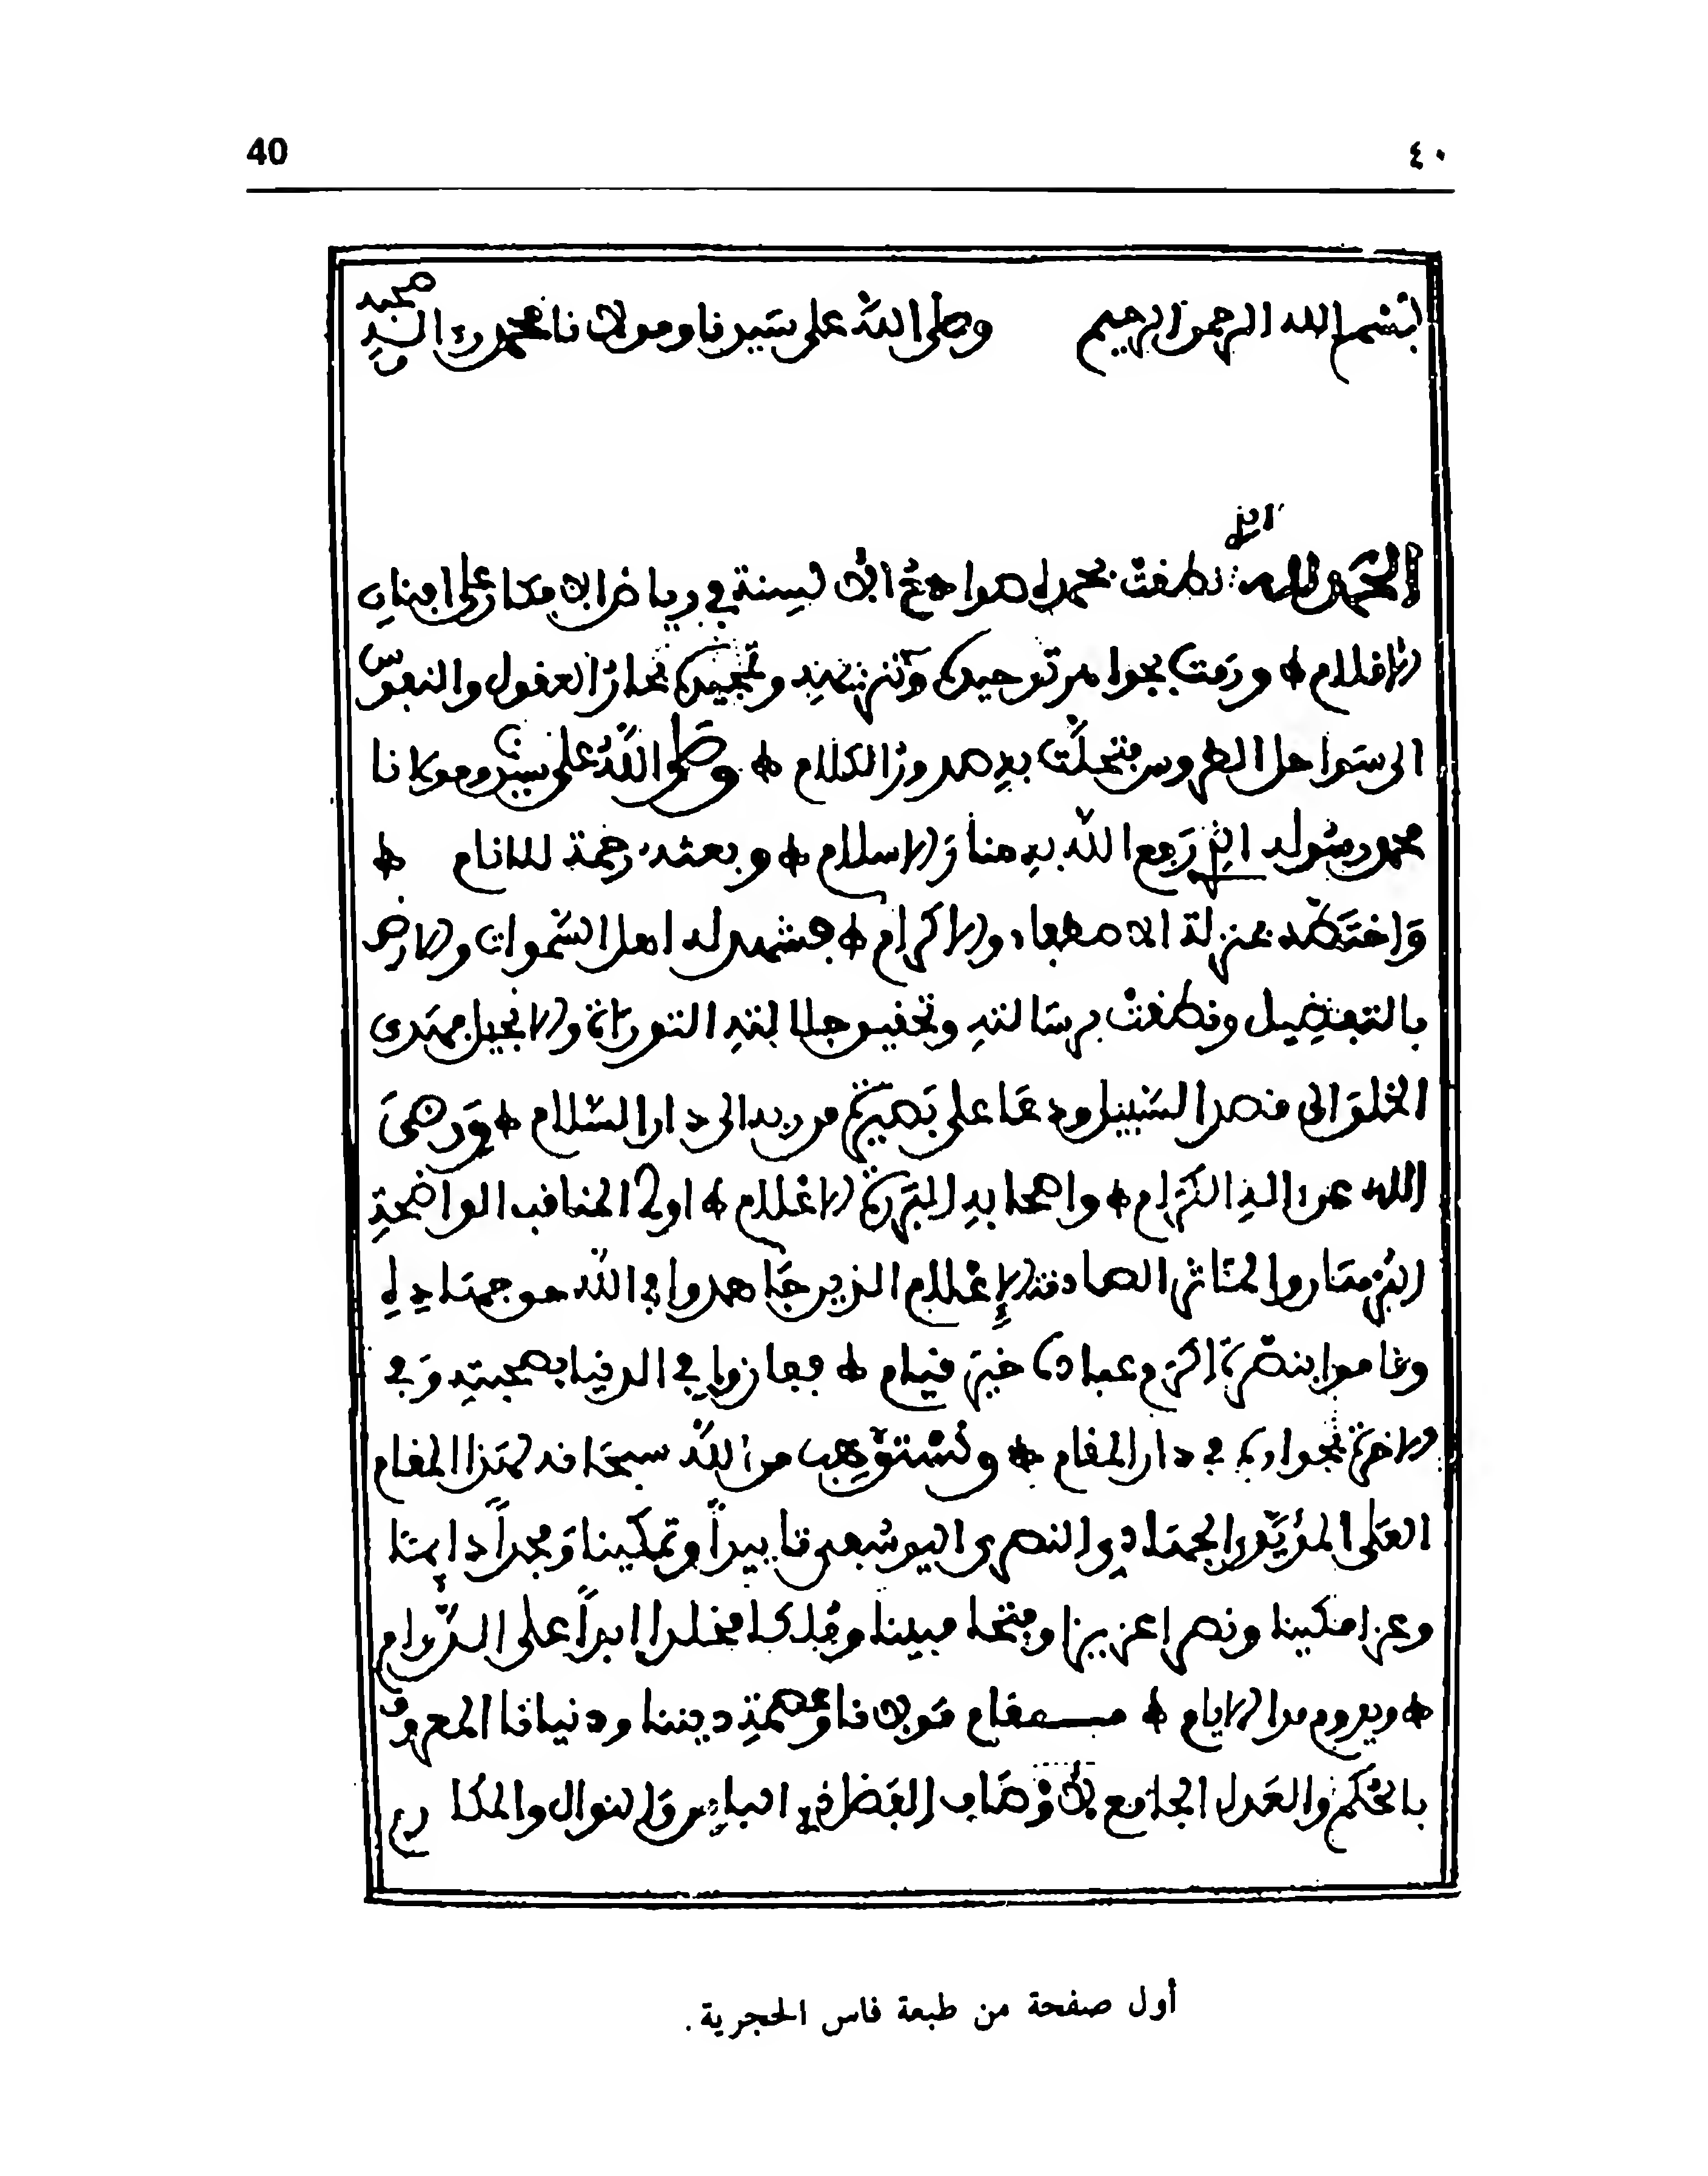 40
٤٠
بسم الله الرحمن الرحيم وصلى الله على سيدنا ومولانا محمد وءاله وصحبه
الحمد لله الذي نطقت بحمده صوادح الألسنة في رياض الأفكار على افنان
الاقلام ورمت بجواهر توحيده وتنزيهه وتمجيده بحار العقول والنفوس
الى سواحل الطروس فتحلت به صدور الكلام وصلى الله على سيدنا ومولانا
محمد رسوله الذي رفع الله به منار الاسلام وبعثه رحمة للانام
واختصه بمنزلة الاصطفاء والاكرام فشهد له اهل السموات والارض
بالتفضيل ونطقت برسالته وتحقيق جلالته التوراة والانجيل فهدى
الخلق الى قصد السبيل ودعا على بصيرة من ربه الى دار السلام ورضى
الله عن ءاله الكرام واصحابه البررة الاعلام اولى المناقب الواضحة
المنار والمآثر الصادقة الإعلام الذين جاهدوا في الله حق جهاده
وقاموا بنصرة اكرم عباده خير قيام ففازوا في الدنيا بصحبته وفى
الاخرة بجواره في دار المقام ونستوهب من الله سبحانه لهذا المقام
العلى المؤيد الجهادي والنصرى اليوسفى تاييداً وتمكينا ومجداً دايما
وعزا مكينا ونصرا عزيزا وفتحا مبينا وملكا مخلدا ابداً على الدوام
ويدوم مدا الايام مقام مولانا وعصمة ديننا ودنيانا المعروف
بالحكم والعدل الجامع لأوصاف الفضل والنوال والمكا
رم
أول صفحة من طبعة فاس الحجرية.